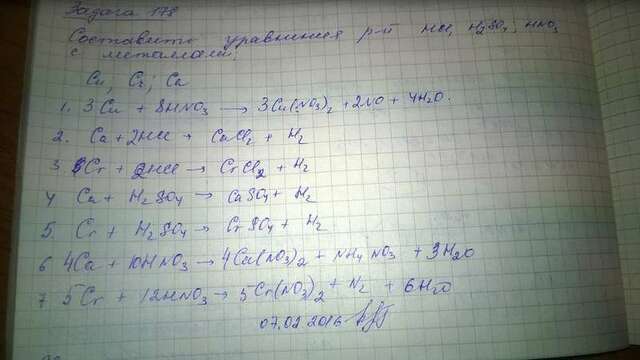 Задача 178
Составить уравнения р-й HCl, H₂SO₄, HNO₃
с металлами:
Cu, Cr, Ca
1. 3Cu + 8HNO₃ → 3Cu(NO₃)₂ + 2NO + 4H₂O.
2. Ca + 2HCl → CaCl₂ + H₂
3 Cr + 2HCl → CrCl₂ + H₂
4 Ca + H₂SO₄ → CaSO₄ + H₂
5. Cr + H₂SO₄ → CrSO₄ + H₂
6 4Ca + 10HNO₃ → 4Ca(NO₃)₂ + NH₄NO₃ + 3H₂O
7. 5Cr + 12HNO₃ → 5Cr(NO₃)₂ + N₂ + 6H₂O
07.02 2016